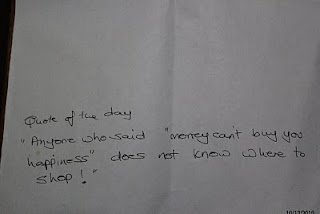 Quote of the day
"Anyone who said "money can't buy you
happiness" does not know where to
shop!"